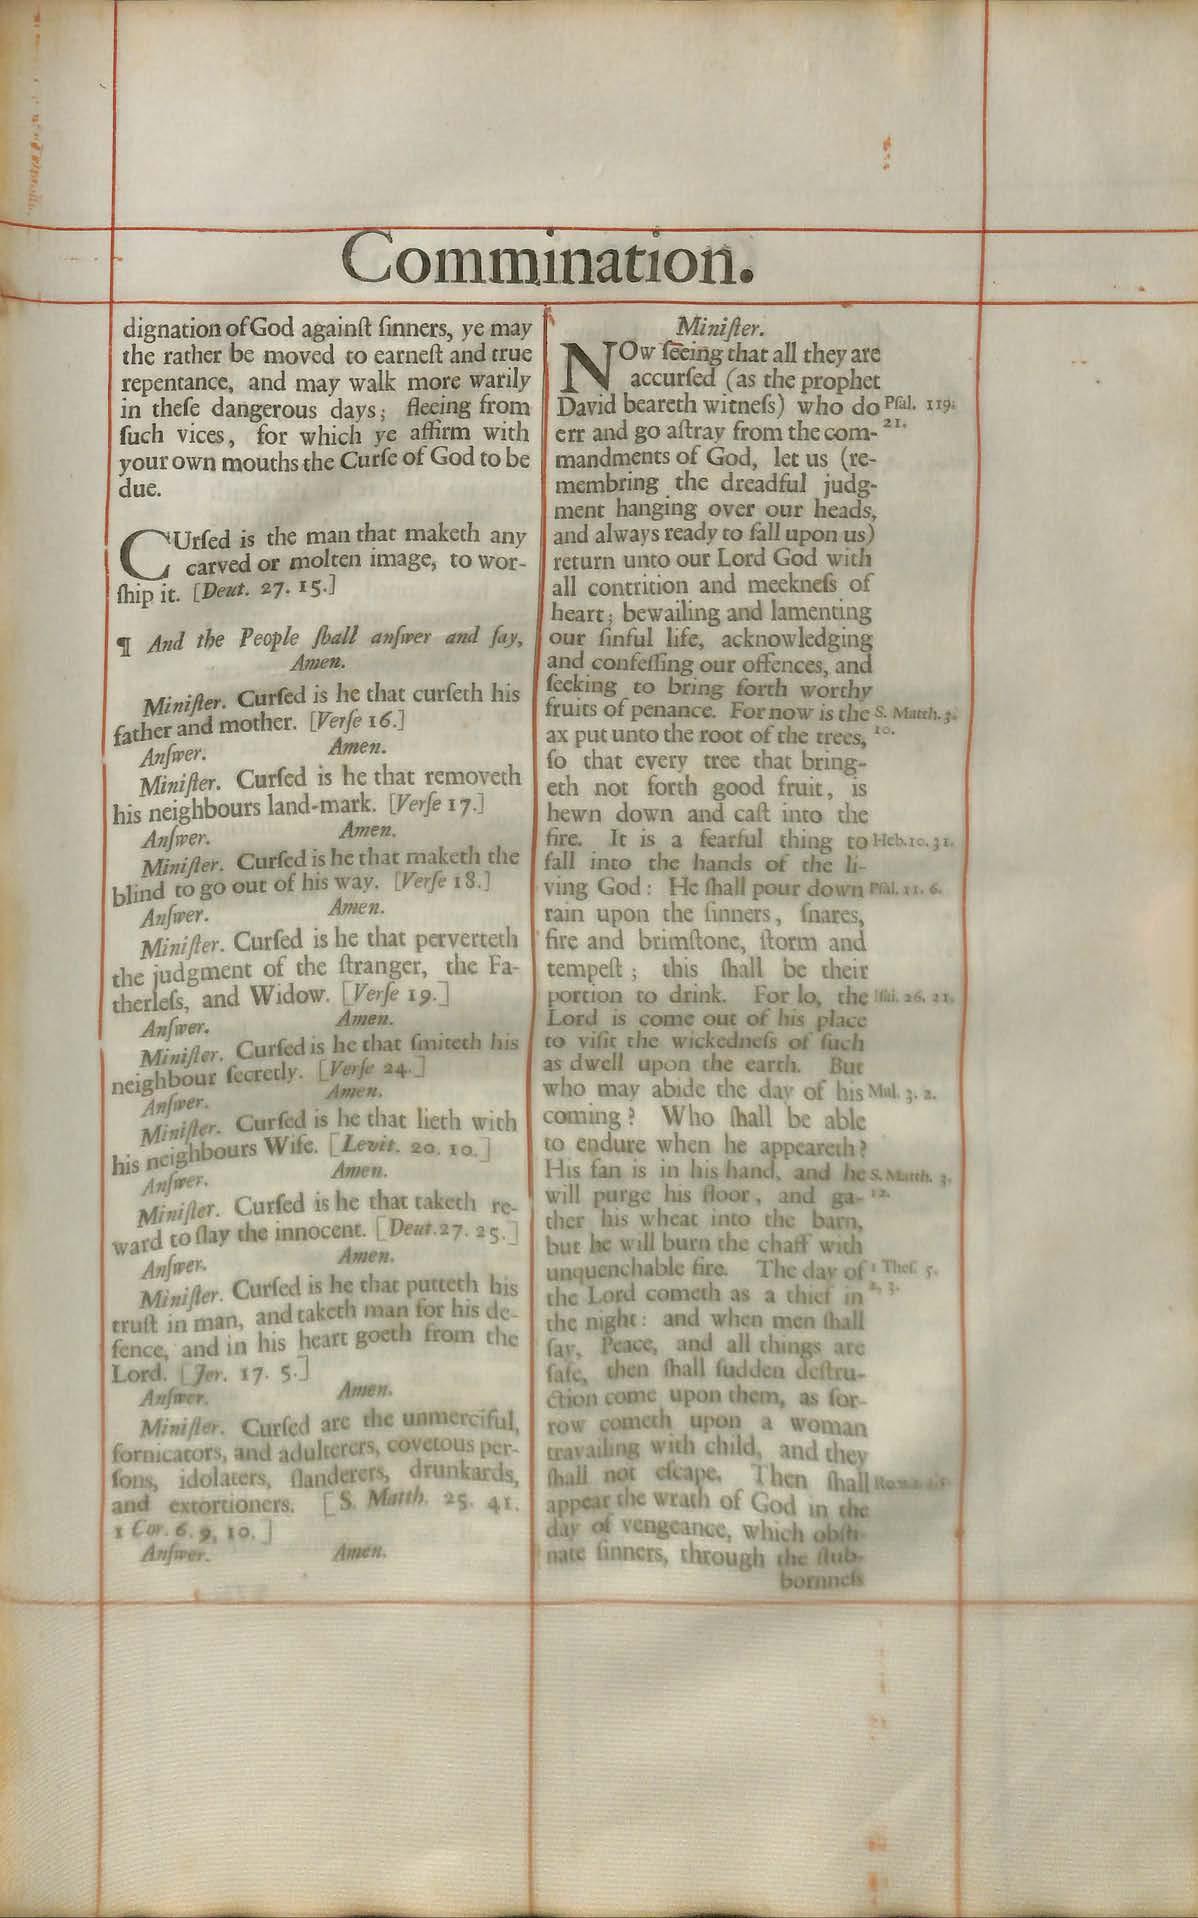 Commination.
dignation of God againſt ſinners, ye may
the rather be moved to earneſt and true
repentance, and may walk more warily
in theſe dangerous days; fleeing from
ſuch vices, for which ye affirm with
your own mouths the Curſe of God to be
due.
CUrſed is the man that maketh any
carved or molten image, to wor-
ſhip it. [Deut. 27. 15.]
¶ And the People ſhall anſwer and ſay,
Amen.
Miniſter. Curſed is he that curſeth his
father and mother. [Verſe 16.]
Anſwer. Amen.
Miniſter. Curſed is he that removeth
his neighbours land-mark. [Verſe 17.]
Anſwer. Amen.
Miniſter. Curſed is he that maketh the
blind to go out of his way. [Verſe 18.]
Anſwer. Amen.
Miniſter. Curſed is he that perverteth
the judgment of the ſtranger, the Fa-
therleſs, and Widow. [Verſe 19.]
Anſwer. Amen.
Miniſter. Curſed is he that ſmiteth his
neighbour ſecretly. [Verſe 24.]
Anſwer. Amen.
Miniſter. Curſed is he that lieth with
his neighbours Wife. [Levit. 20. 10.]
Anſwer. Amen.
Miniſter. Curſed is he that taketh re-
ward to ſlay the innocent. [Deut. 27. 25.]
Anſwer. Amen.
Miniſter. Curſed is he that putteth his
truſt in man, and taketh man for his de-
fence, and in his heart goeth from the
Lord. [Jer. 17. 5.]
Anſwer. Amen.
Miniſter. Curſed are the unmerciful,
fornicators, and adulterers, covetous per-
ſons, idolaters, ſlanderers, drunkards,
and extortioners. [S. Matth. 25. 41.
1 Cor. 6. 9, 10.]
Anſwer. Amen.
Miniſter.
NOw ſeeing that all they are
accurſed (as the prophet
David beareth witneſs) who do Pſal. 119.
err and go aſtray from the com- 21.
mandments of God, let us (re-
membring the dreadful judg-
ment hanging over our heads,
and always ready to fall upon us)
return unto our Lord God with
all contrition and meekneſs of
heart; bewailing and lamenting
our ſinful life, acknowledging
and confeſſing our offences, and
ſeeking to bring forth worthy
fruits of penance. For now is the S. Matth. 3.
ax put unto the root of the trees, 10.
ſo that every tree that bring-
eth not forth good fruit, is
hewn down and caſt into the
fire. It is a fearful thing to Heb. 10. 31.
fall into the hands of the li-
ving God: He ſhall pour down Pſal. 11. 6.
rain upon the ſinners, ſnares,
fire and brimſtone, ſtorm and
tempeſt; this ſhall be their
portion to drink. For lo, the Iſai. 26. 21.
Lord is come out of his place
to viſit the wickedneſs of ſuch
as dwell upon the earth. But
who may abide the day of his Mal. 3. 2.
coming? Who ſhall be able
to endure when he appeareth?
His fan is in his hand, and he S. Matth. 3.
will purge his floor, and ga- 12.
ther his wheat into the barn,
but he will burn the chaff with
unquenchable fire. The day of 1 Theſ. 5.
the Lord cometh as a thief in 2, 3.
the night: and when men ſhall
ſay, Peace, and all things are
ſafe, then ſhall ſudden deſtru-
ction come upon them, as ſor-
row cometh upon a woman
travailing with child, and they
ſhall not eſcape. Then ſhall
appear the wrath of God in the
day of vengeance, which obſti-
nate ſinners, through the ſtub-
bornneſs